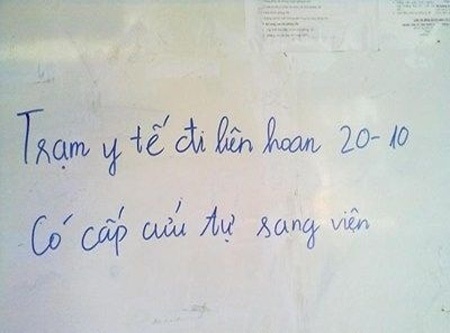 Trạm y tế đi liên hoan 20-10
Có cấp cứu tự sang viện